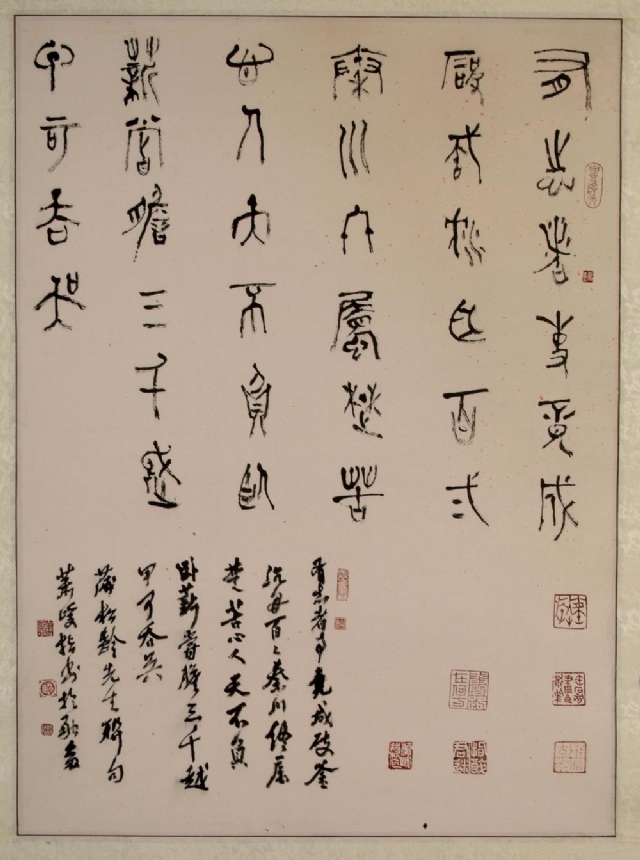 有志者事竟成
破釜沉舟百二
秦川終屬楚苦
心人天不負臥
薪嘗膽三千越
甲可吞吳
有志者事竟成破釜
沉舟百二秦川終屬
楚苦心人天不負
卧薪嘗膽三千越
甲可吞吴
蒲松齡先生聯句